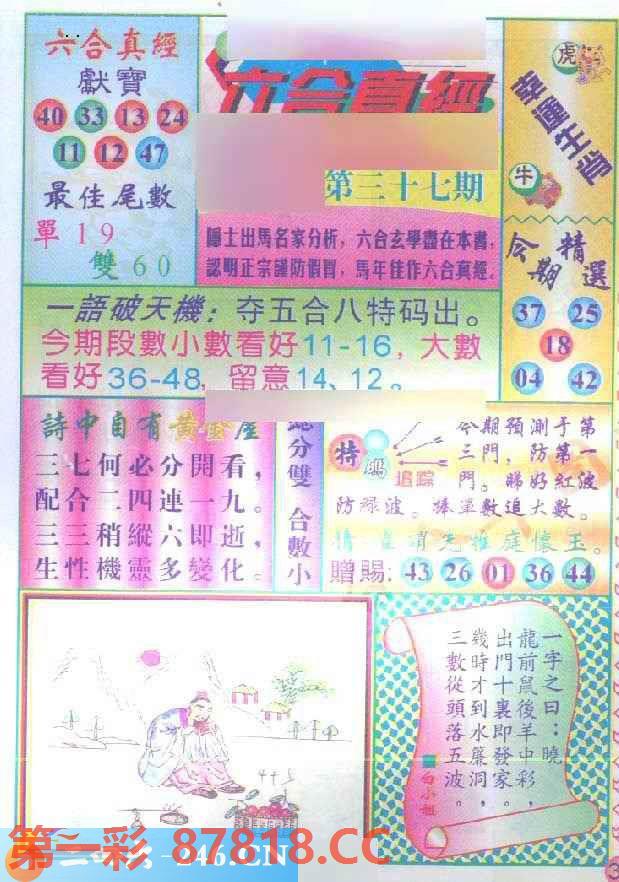 六合真經
獻寶
40 33 13 24
11 12 47
最佳尾數
單19
雙60
六合真經
第三十七期
隱士出馬名家分析，六合玄學盡在本書，
認明正宗謹防假冒，馬年佳作六合真經。
虎
幸運生肖
牛
今期精選
37 25
18
04 42
一語破天機：夺五合八特码出。
今期段數小數看好11-16，大數
看好36-48，留意14、12。
詩中自有黃金屋
三七何必分開看，
配合二四連一九。
三三稍縱六即逝，
生性機靈多變化。
總分雙 合數小
特碼
追踪
今期預測于第
三門，防第一
門。睇好紅波
防綠波。捧單數追大數。
贈賜：43 26 01 36 44
一字之曰：曉
龍前鼠後羊中彩，
出門十裏即發家。
幾時才到水簾洞，
三數從頭落五波。
白小姐
第一彩 87818.CC
246.CN
3